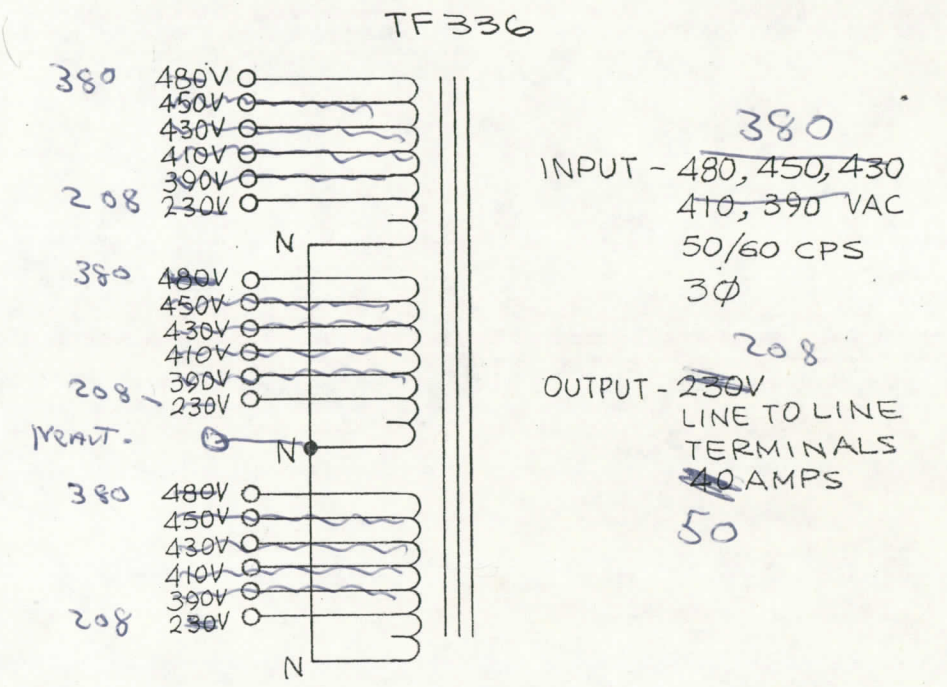 TF 336
380 480V
450V
430V
410V
390V
208 230V
N
380 480V
450V
430V
410V
390V
208 230V
NEAUT. N
380 480V
450V
430V
410V
390V
208 230V
N
380
INPUT - 480, 450, 430
410, 390 VAC
50/60 CPS
3Ø
208
OUTPUT - 230V
LINE TO LINE
TERMINALS
40 AMPS
50